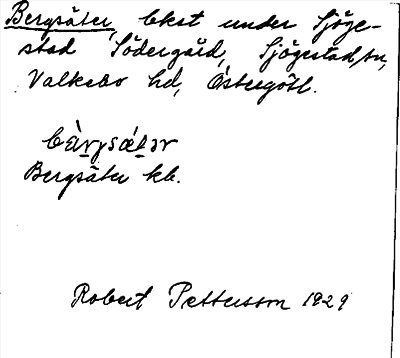 Bergsäter, bkst under Sjöge-
stad Södergård, Sjögestad sn,
Valkebo hd, Östergötl.
bærgsætər
Bergsäter kb.
Robert Pettersson 1929